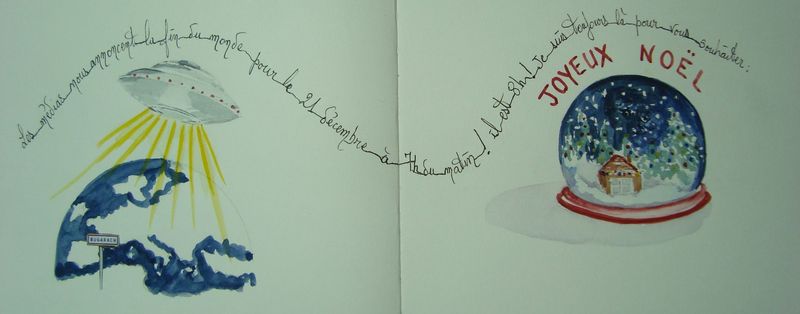 Les médias nous annoncent la fin du monde pour le 21 Décembre à 7h du matin! il est 8h! Je suis toujours là pour vous souhaiter:
JOYEUX NOËL
BUGARACH